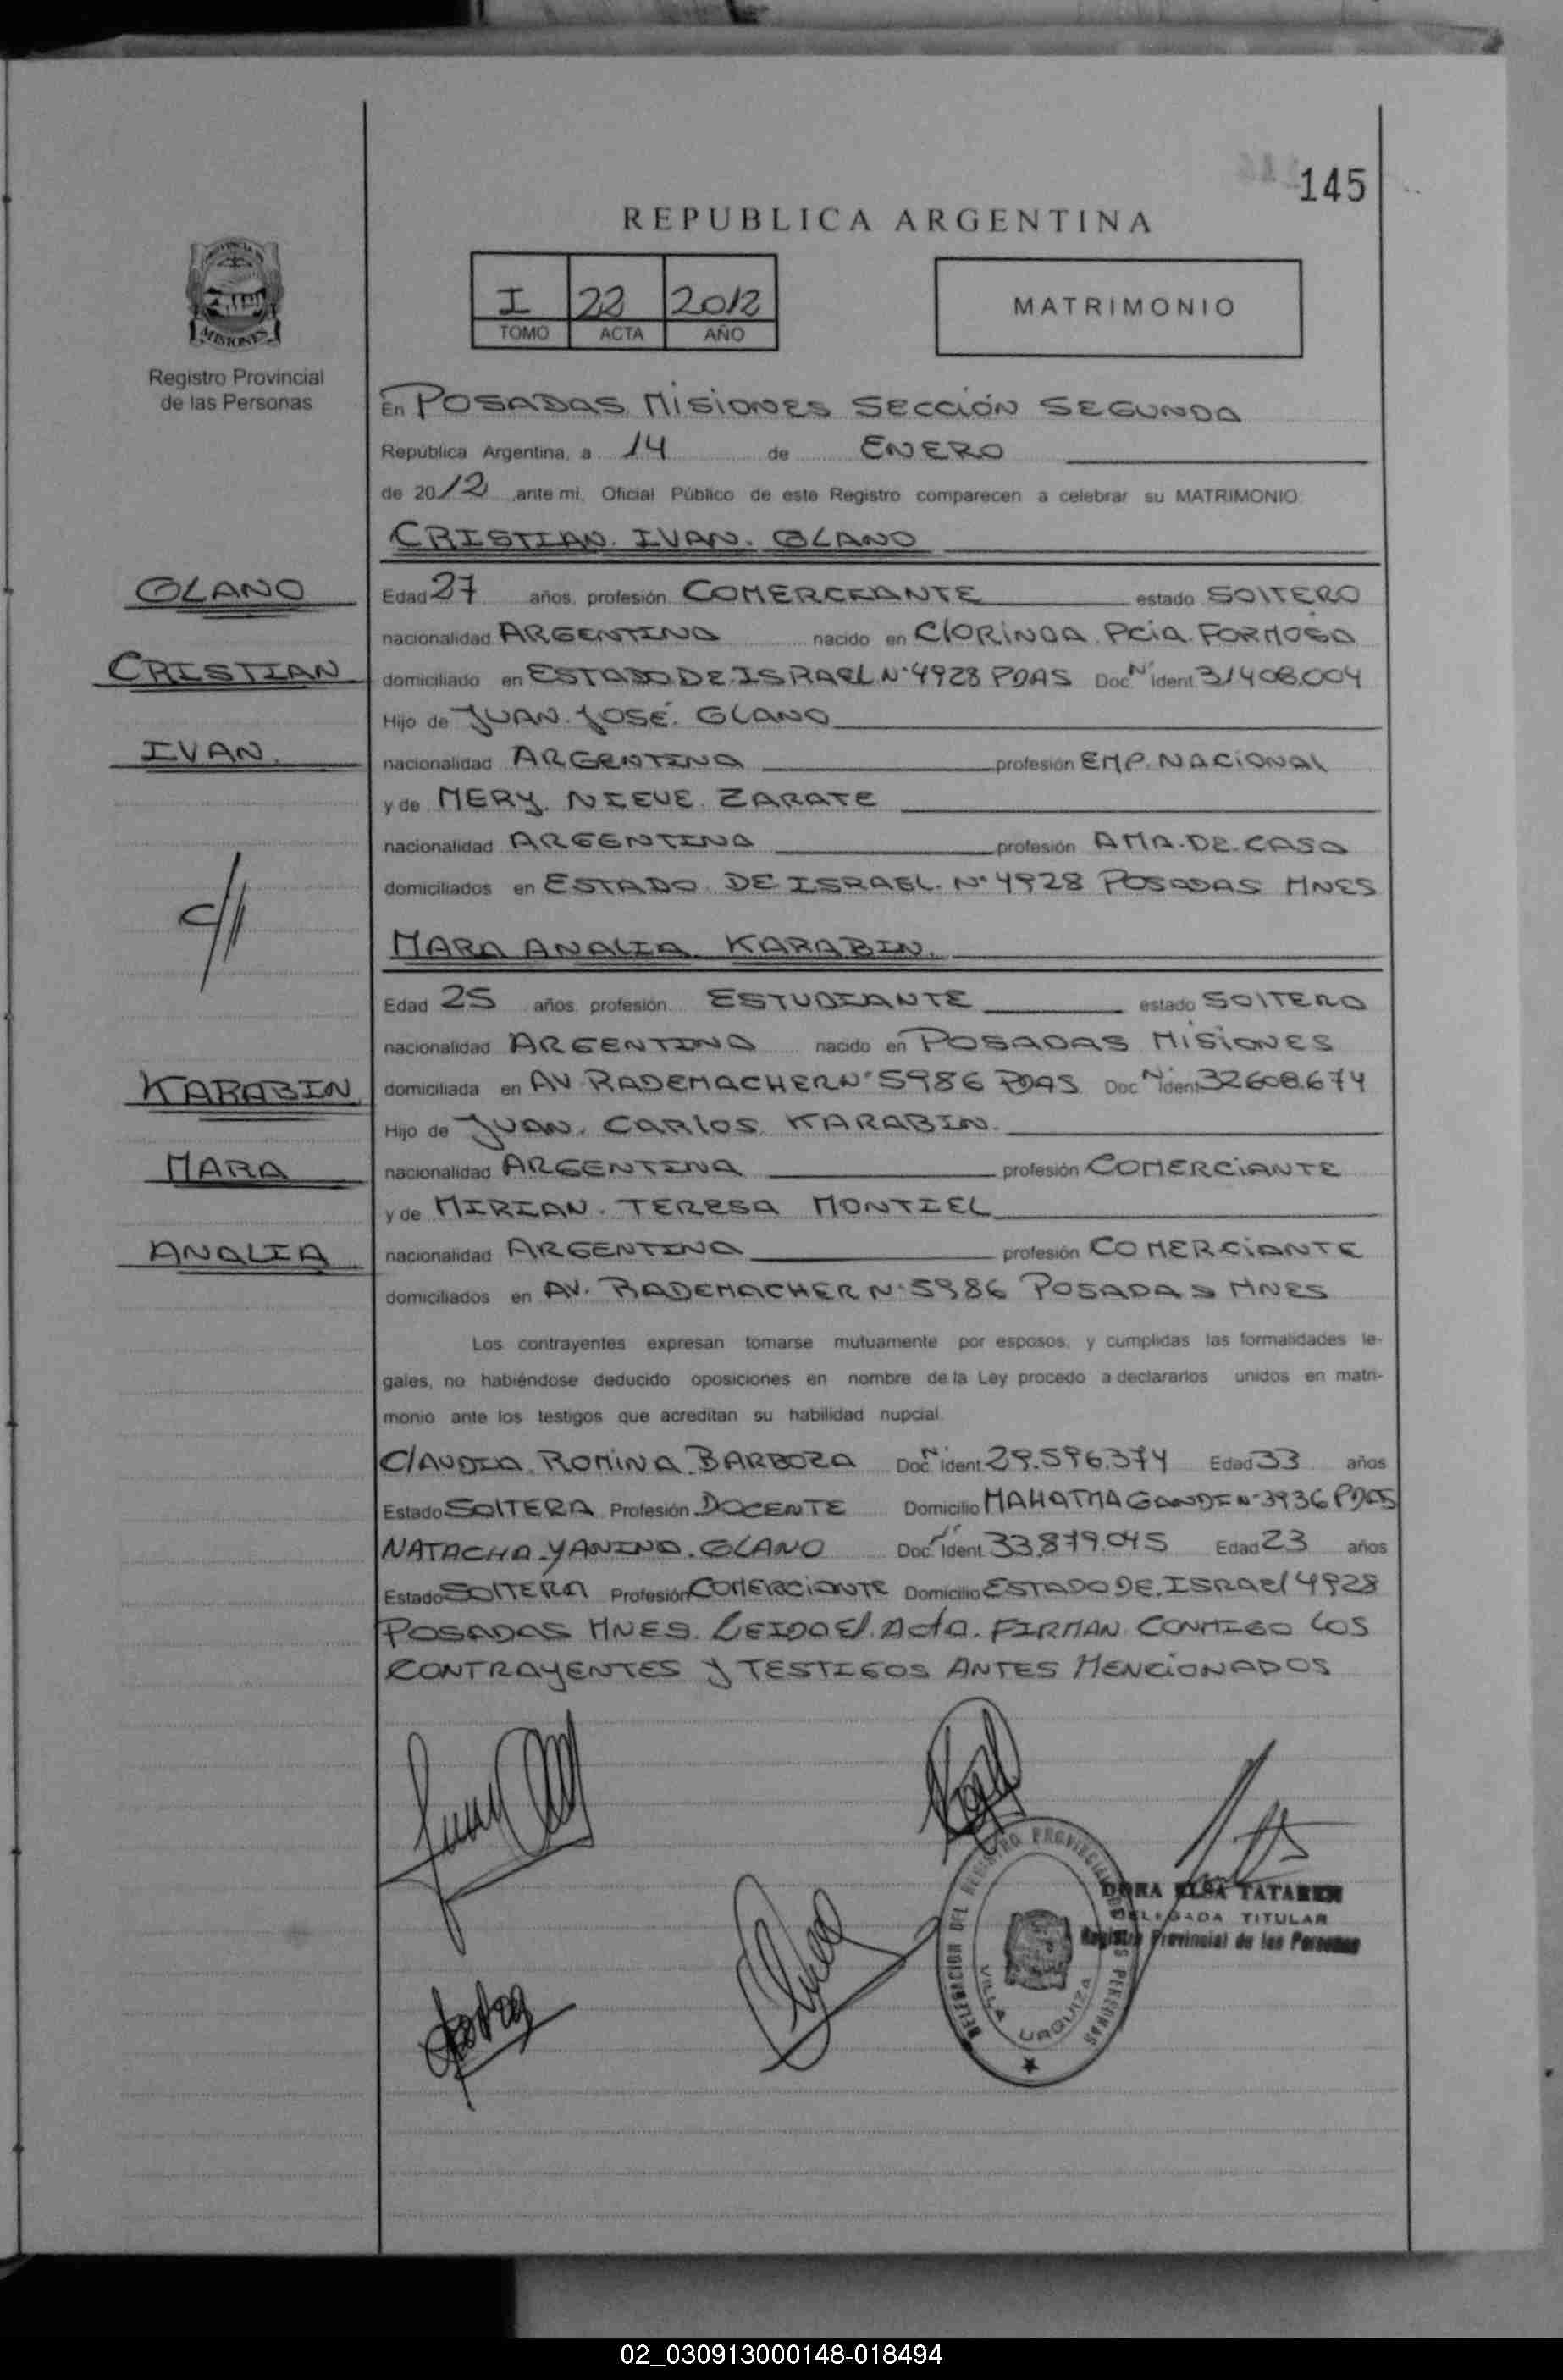 145
REPUBLICA ARGENTINA
I 22 2012
TOMO ACTA AÑO
MATRIMONIO
MISIONES
Registro Provincial
de las Personas
En POSADAS MISIONES SECCIÓN SEGUNDA
República Argentina, a 14 de ENERO
de 2012, ante mi, Oficial Público de este Registro comparecen a celebrar su MATRIMONIO
CRISTIAN. IVAN. OLANO
OLANO
CRISTIAN
IVAN.
Edad 27 años, profesión COMERCIANTE estado SOLTERO
nacionalidad ARGENTINA nacido en CLORINDA. PCIA. FORMOSA
domiciliado en ESTADO DE ISRAEL N° 4928 PDAS Doc. N° Ident. 31408.004
Hijo de JUAN. JOSÉ. OLANO
nacionalidad ARGENTINA profesión EMP. NACIONAL
y de MERY. NIEVE. ZARATE
nacionalidad ARGENTINA profesión AMA. DE. CASA
domiciliados en ESTADO DE ISRAEL. N° 4928 POSADAS MNES
MARA ANALIA KARABIN.
KARABIN
MARA
ANALIA
Edad 25 años, profesión ESTUDIANTE estado SOLTERA
nacionalidad ARGENTINA nacido en POSADAS MISIONES
domiciliada en AV RADEMACHER N° 5986 PDAS Doc. N° Ident. 32608.674
Hijo de JUAN. CARLOS. KARABIN.
nacionalidad ARGENTINA profesión COMERCIANTE
y de MIRIAN. TERESA MONTIEL
nacionalidad ARGENTINA profesión COMERCIANTE
domiciliados en AV. RADEMACHER N° 5986 POSADAS MNES
Los contrayentes expresan tomarse mutuamente por esposos, y cumplidas las formalidades le-
gales, no habiéndose deducido oposiciones en nombre de la Ley procedo a declararlos unidos en matri-
monio ante los testigos que acreditan su habilidad nupcial.
CLAUDIA. ROMINA. BARBOZA Doc. N° Ident. 29.596.374 Edad 33 años
Estado SOLTERA Profesión DOCENTE Domicilio MAHATMA GANDI N° 3936 PDAS
NATACHA YANINA. OLANO Doc. N° Ident. 33.879.045 Edad 23 años
Estado SOLTERA Profesión COMERCIANTE Domicilio ESTADO DE. ISRAEL 4928
POSADAS MNES. LEIDO EL ACTA. FIRMAN CONMIGO LOS
CONTRAYENTES Y TESTIGOS ANTES MENCIONADOS
DELEGACION DEL REGISTRO PROVINCIAL DE LAS PERSONAS
VILLA URQUIZA
DORA ELSA TATAREN
DELEGADA TITULAR
Registro Provincial de las Personas
02_030913000148-018494